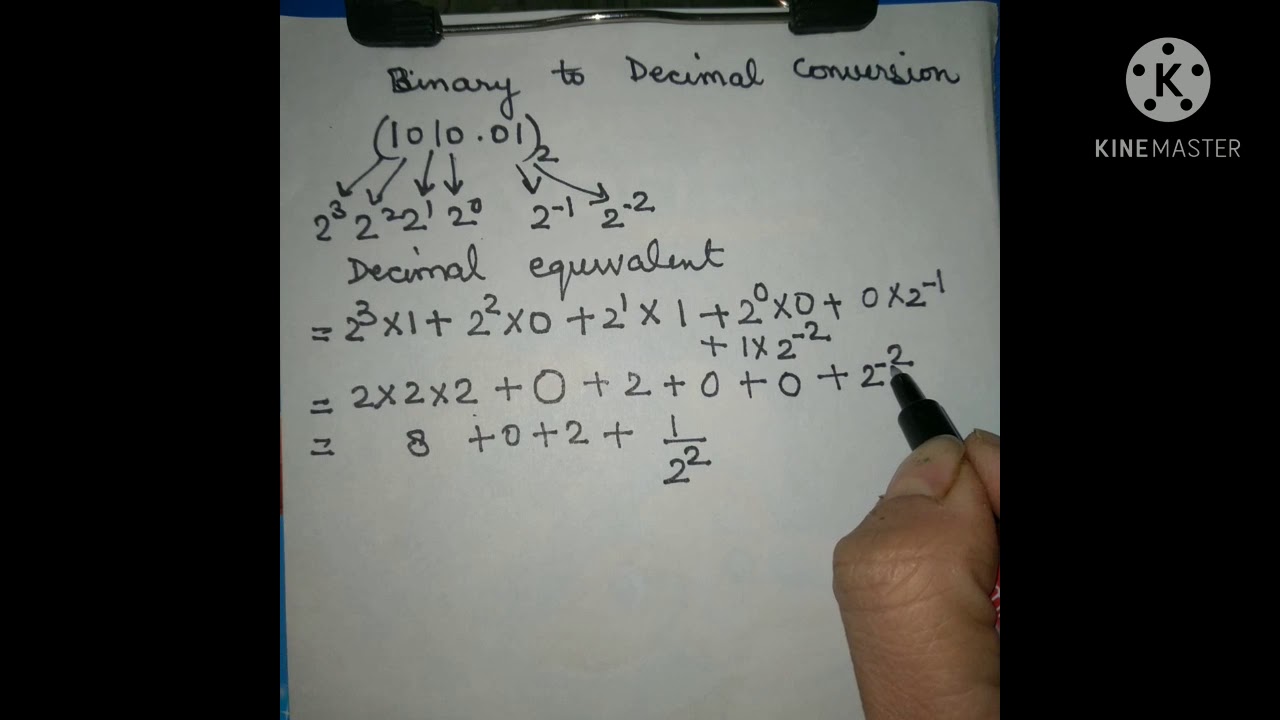 Binary to Decimal Conversion
(1010.01)₂
2³ 2² 2¹ 2⁰ 2⁻¹ 2⁻²
Decimal equivalent
= 2³×1 + 2²×0 + 2¹×1 + 2⁰×0 + 0×2⁻¹
+ 1×2⁻²
= 2×2×2 + 0 + 2 + 0 + 0 + 2⁻²
= 8 + 0 + 2 + 1/2²
K
KINEMASTER